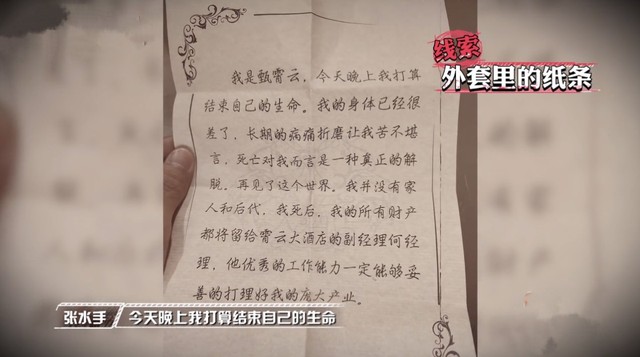 线索
外套里的纸条
我是甄霄云，今天晚上我打算
结束自己的生命。我的身体已经很
差了，长期的病痛折磨让我苦不堪
言，死亡对我而言是一种真正的解
脱，再见了这个世界。我并没有家
人和后代，我死后，我的所有财产
都将留给霄云大酒店的副经理何经
理，他优秀的工作能力一定能够妥
善的打理好我的庞大产业。
张水手
今天晚上我打算结束自己的生命